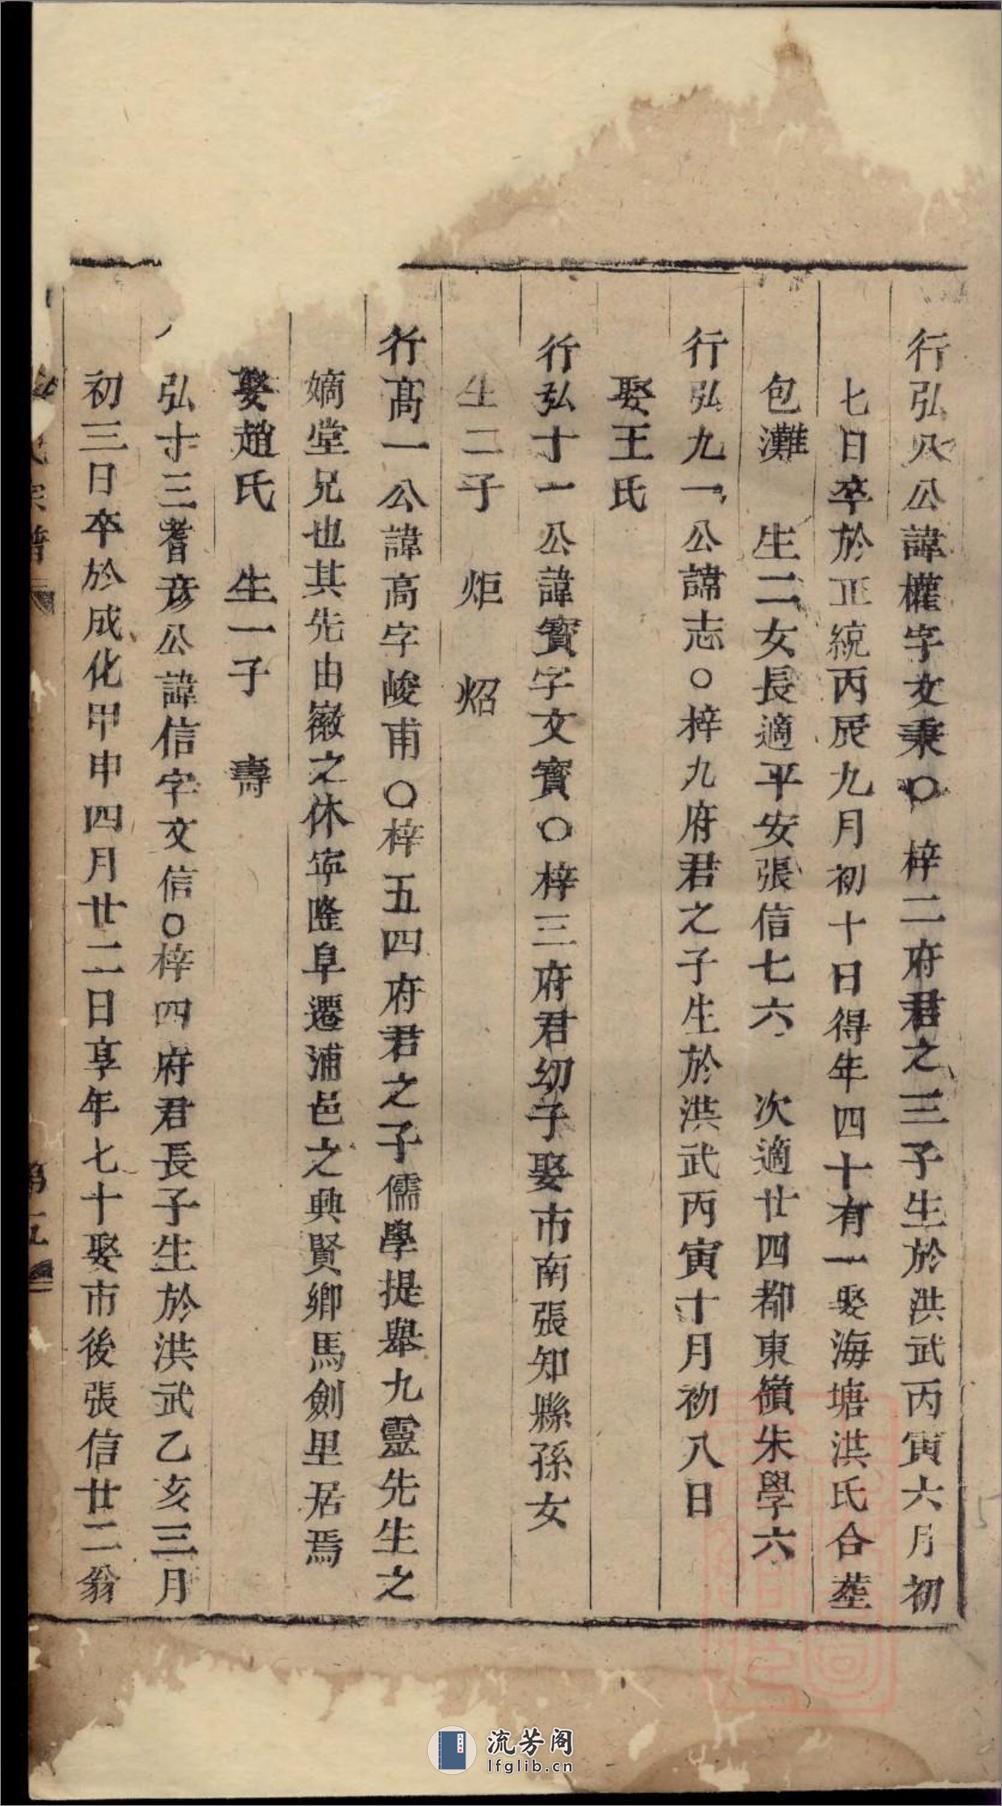 行弘八公諱權字文秉○梓二府君之三子生於洪武丙寅六月初
七日卒於正統丙辰九月初十日得年四十有一娶海塘洪氏合塟
包灘 生二女長適平安張信七六 次適廿四都東嶺朱學六
行弘九一公諱志○梓九府君之子生於洪武丙寅十月初八日
娶王氏
行弘十一公諱寳字文寳○梓三府君幼子娶市南張知縣孫女
生二子 炬 炤
行高一公諱高字峻甫○梓五四府君之子儒學提舉九靈先生之
嫡堂兄也其先由徽之休寧隆阜遷浦邑之興賢鄉馬劍里居焉
娶趙氏 生一子 壽
弘十三耆彥公諱信字文信○梓四府君長子生於洪武乙亥三月
初三日卒於成化甲申四月廿二日享年七十娶市後張信廿二翁
氏宗譜
第五
流芳阁
lfglib.cn